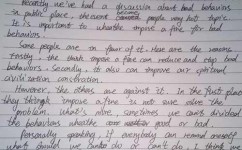 Recently we've had a discussion about bad behaviors
in public place, different people very hot topic.
It is important to whether impose a fine for bad
behaviors.
Some people are in favor of it. Here are the reasons
Firstly, the impose a fine can reduce and stop bad
behaviors. Secondly, to also can improve our spiritual
civilization construction.
However, the others are against it. In the first place
they through impose a fine is not sure solve the
problem. what's more, sometimes we can't divided
the behaviors whether good or bad
Personally speaking, if everybody can remind oneself
what should we do or can't do, I think we